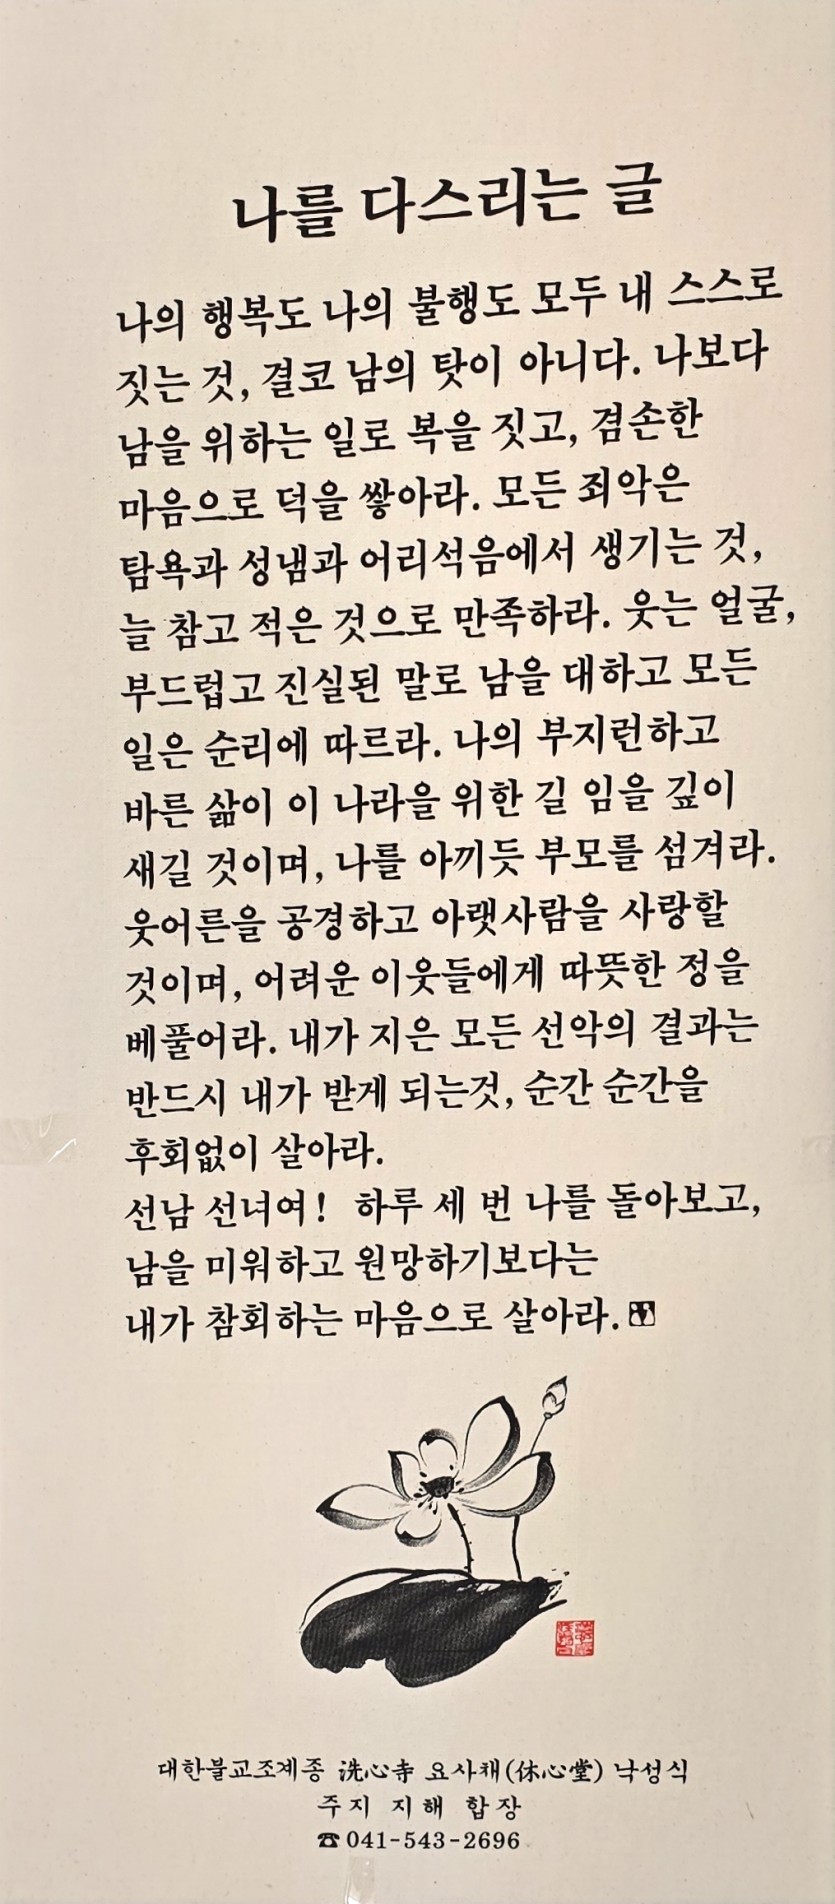 나를 다스리는 글
나의 행복도 나의 불행도 모두 내 스스로
짓는 것, 결코 남의 탓이 아니다. 나보다
남을 위하는 일로 복을 짓고, 겸손한
마음으로 덕을 쌓아라. 모든 죄악은
탐욕과 성냄과 어리석음에서 생기는 것,
늘 참고 적은 것으로 만족하라. 웃는 얼굴,
부드럽고 진실된 말로 남을 대하고 모든
일은 순리에 따르라. 나의 부지런하고
바른 삶이 이 나라을 위한 길 임을 깊이
새길 것이며, 나를 아끼듯 부모를 섬겨라.
웃어른을 공경하고 아랫사람을 사랑할
것이며, 어려운 이웃들에게 따뜻한 정을
베풀어라. 내가 지은 모든 선악의 결과는
반드시 내가 받게 되는것, 순간 순간을
후회없이 살아라.
선남 선녀여! 하루 세 번 나를 돌아보고,
남을 미워하고 원망하기보다는
내가 참회하는 마음으로 살아라.
대한불교조계종 洗心寺 요사채(休心堂) 낙성식
주지 지해 합장
☎041-543-2696